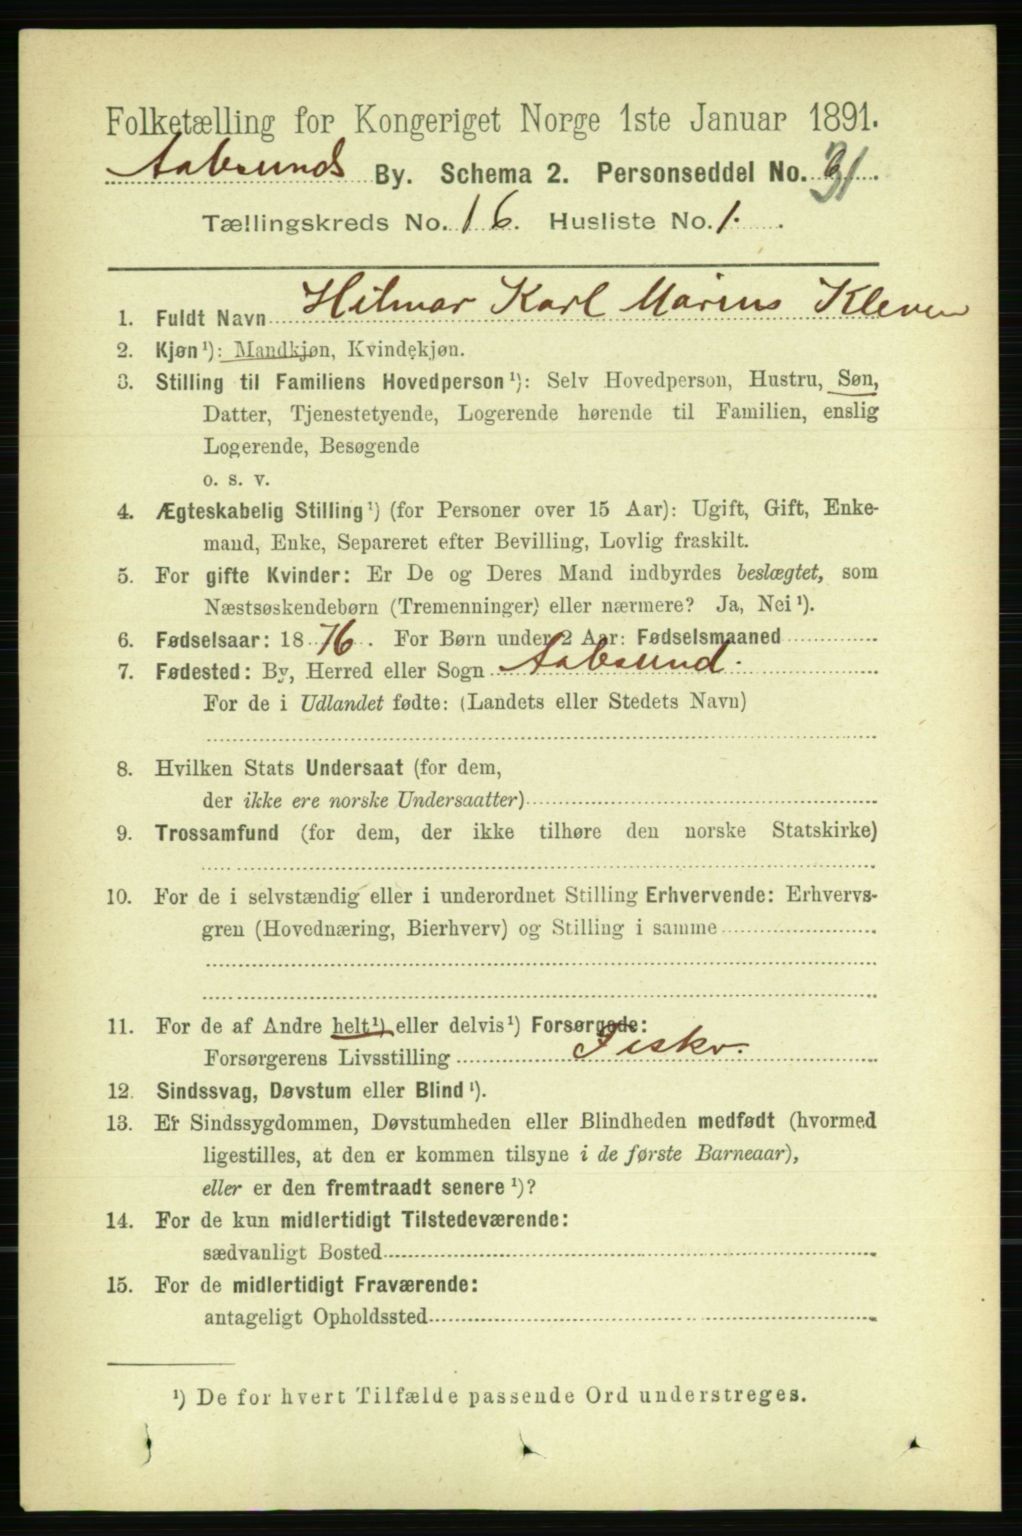 Folketælling for Kongeriget Norge 1ste Januar 1891.
Aalesunds By. Schema 2. Personseddel No. 31.
Tællingskreds No. 16. Husliste No. 1.
1. Fuldt Navn Hilmar Karl Marius Kleven
2. Kjøn¹): Mandkjøn, Kvindekjøn.
3. Stilling til Familiens Hovedperson¹): Selv Hovedperson, Hustru, Søn,
Datter, Tjenestetyende, Logerende hørende til Familien, enslig
Logerende, Besøgende
o. s. v.
4. Ægteskabelig Stilling¹) (for Personer over 15 Aar): Ugift, Gift, Enke-
mand, Enke, Separeret efter Bevilling, Lovlig fraskilt.
5. For gifte Kvinder: Er De og Deres Mand indbyrdes beslægtet, som
Næstsøskendebørn (Tremenninger) eller nærmere? Ja, Nei¹).
6. Fødselsaar: 1876. For Børn under 2 Aar: Fødselsmaaned
7. Fødested: By, Herred eller Sogn Aalesund.
For de i Udlandet fødte: (Landets eller Stedets Navn)
8. Hvilken Stats Undersaat (for dem,
der ikke ere norske Undersaatter)
9. Trossamfund (for dem, der ikke tilhøre den norske Statskirke)
10. For de i selvstændig eller i underordnet Stilling Erhvervende: Erhvervs-
gren (Hovednæring, Bierhverv) og Stilling i samme
11. For de af Andre helt¹) eller delvis¹) Forsørgede:
Forsørgerens Livsstilling Fisker.
12. Sindssvag, Døvstum eller Blind¹).
13. Er Sindssygdommen, Døvstumheden eller Blindheden medfødt (hvormed
ligestilles, at den er kommen tilsyne i de første Barneaar),
eller er den fremtraadt senere¹)?
14. For de kun midlertidigt Tilstedeværende:
sædvanligt Bosted
15. For de midlertidigt Fraværende:
antageligt Opholdssted
¹) De for hvert Tilfælde passende Ord understreges.